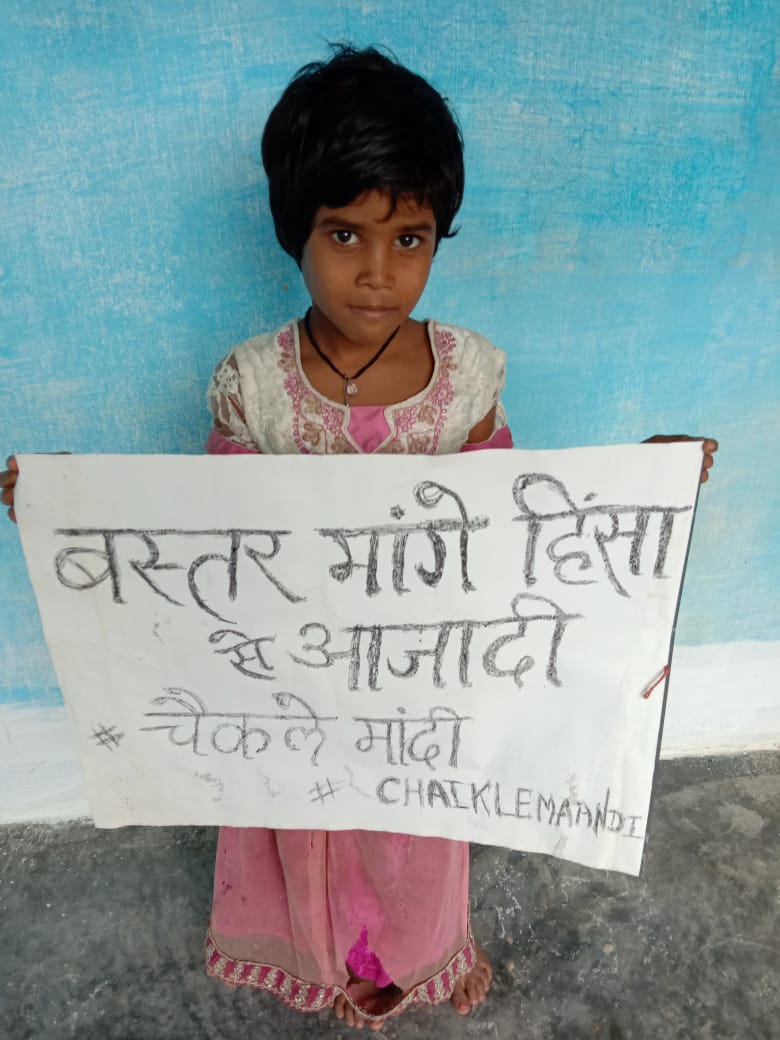 बस्तर मांगे हिंसा
से आजादी
# चैकले मांदी
# CHAIKLEMAANDI